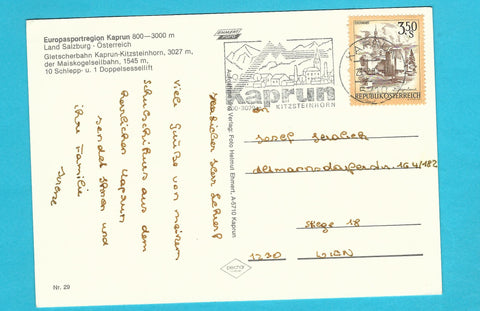 Europasportregion Kaprun 800—3000 m
Land Salzburg · Österreich
Gletscherbahn Kaprun-Kitzsteinhorn, 3027 m,
der Maiskogelseilbahn, 1545 m,
10 Schlepp- u. 1 Doppelsessellift
Kaprun
KITZSTEINHORN
3.50
S
REPUBLIK ÖSTERREICH
Werter Herr Lehrer!
Viele Grüße von meinem
Schulschikurs aus dem
herrlichen Kaprun
sendet Ihnen und
ihre Familie
Verlag: Foto Helmut Ehmert, A-5710 Kaprun
Josef
Altmannsdorferstr. 164/182
Stiege 18
1230 WIEN
Nr. 29